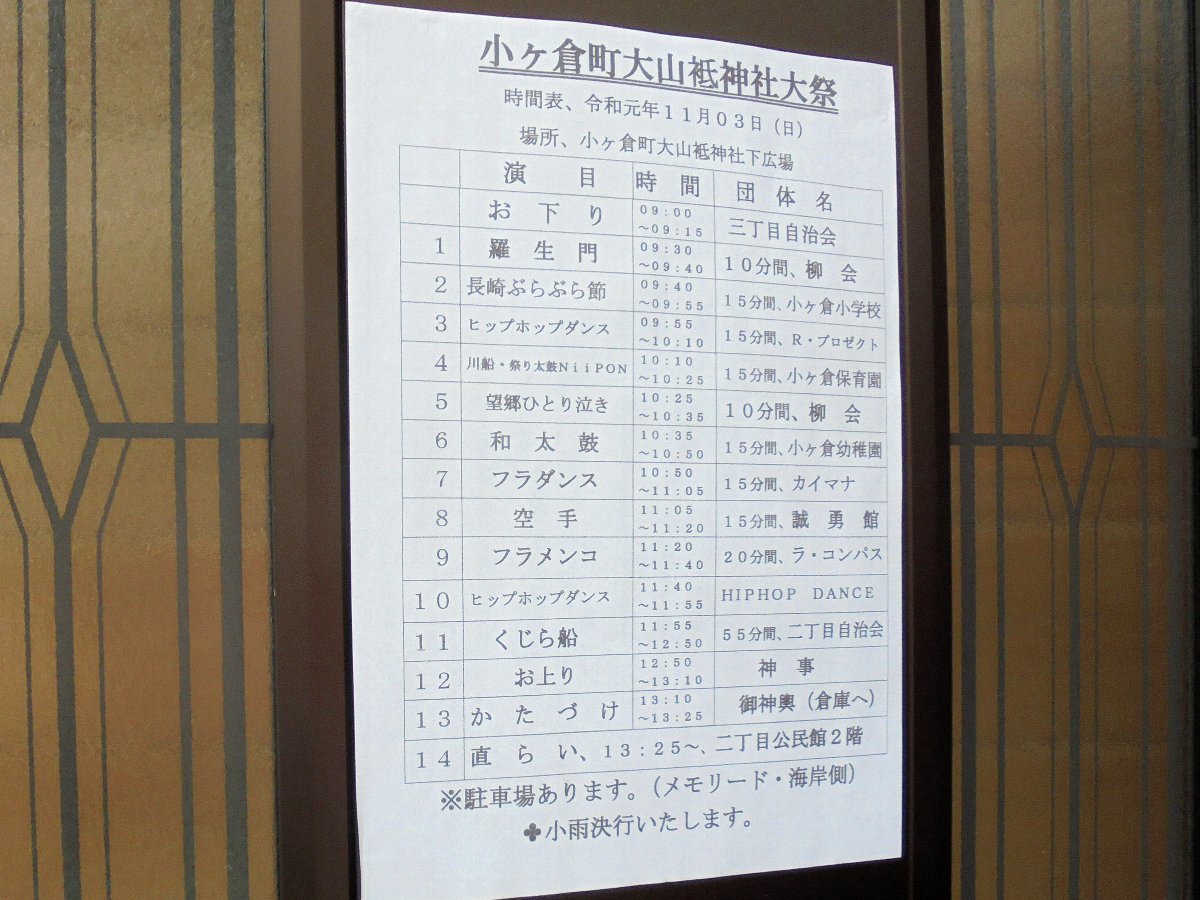 小ヶ倉町大山祗神社大祭
時間表、令和元年11月03日(日)
場所、小ヶ倉町大山祗神社下広場
演 目 時 間 団 体 名
お 下 り 09:00~09:15 三丁目自治会
1 羅 生 門 09:30~09:40 10分間、柳 会
2 長崎ぶらぶら節 09:40~09:55 15分間、小ヶ倉小学校
3 ヒップホップダンス 09:55~10:10 15分間、R・プロゼクト
4 川船・祭り太鼓NiiPON 10:10~10:25 15分間、小ヶ倉保育園
5 望郷ひとり泣き 10:25~10:35 10分間、柳 会
6 和 太 鼓 10:35~10:50 15分間、小ヶ倉幼稚園
7 フラダンス 10:50~11:05 15分間、カイマナ
8 空 手 11:05~11:20 15分間、誠 勇 館
9 フラメンコ 11:20~11:40 20分間、ラ・コンパス
10 ヒップホップダンス 11:40~11:55 HIPHOP DANCE
11 くじら船 11:55~12:50 55分間、二丁目自治会
12 お上り 12:50~13:10 神 事
13 か た づ け 13:10~13:25 御神輿(倉庫へ)
14 直 ら い、13:25~、二丁目公民館2階
※駐車場あります。(メモリード・海岸側)
✤小雨決行いたします。